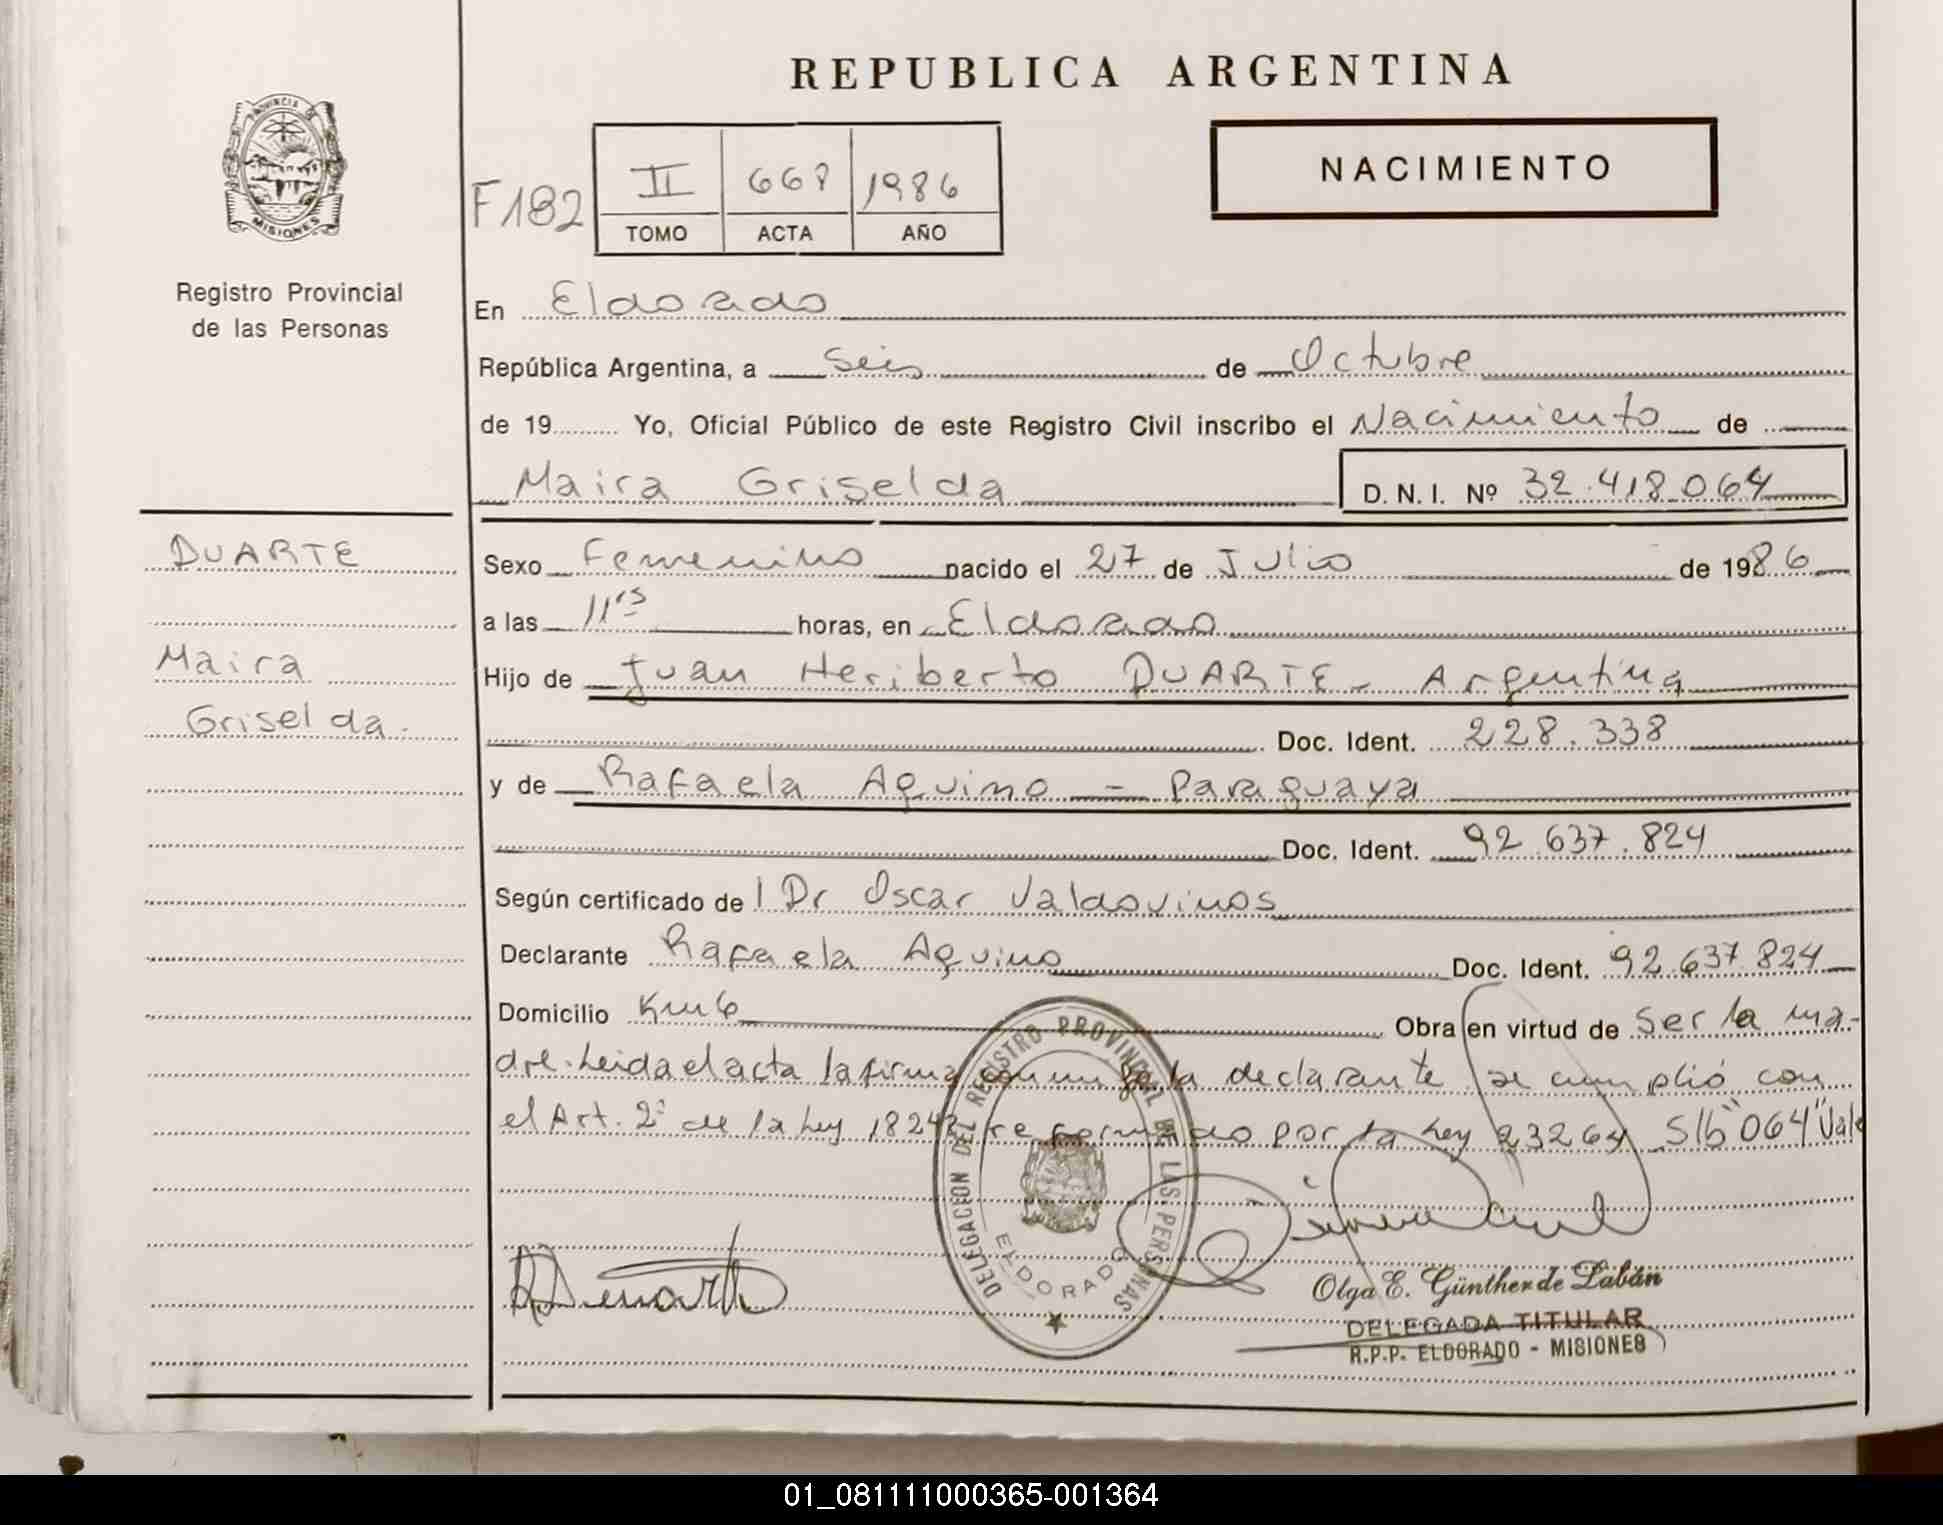 REPUBLICA ARGENTINA
PROVINCIA DE MISIONES
Registro Provincial
de las Personas
NACIMIENTO
F182
II 668 1986
TOMO ACTA AÑO
En Eldorado
República Argentina, a seis de Octubre
de 19 Yo, Oficial Público de este Registro Civil inscribo el Nacimiento de
Maira Griselda D. N. I. Nº 32.418.064
DUARTE
Maira
Griselda.
Sexo Femenino nacido el 27 de Julio de 1986
a las 11rs horas, en Eldorado
Hijo de Juan Heriberto DUARTE - Argentina
Doc. Ident. 228.338
y de Rafaela Aquino - Paraguaya
Doc. Ident. 92.637.824
Según certificado de l Dr Oscar Valdovinos
Declarante Rafaela Aquino Doc. Ident. 92.637.824
Domicilio Km6 Obra en virtud de ser la ma-
dre. Leida el acta la firma la declarante se cumplió con
el Art. 2º de la Ley 18248 reformado por la Ley 23264 S/b "064" Vale
DELEGACION DEL REGISTRO PROVINCIAL DE LAS PERSONAS
ELDORADO
Olga E. Günther de Labán
DELEGADA TITULAR
R.P.P. ELDORADO - MISIONES
01_081111000365-001364